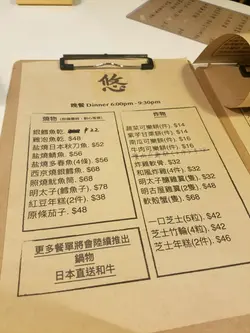 悠
晚餐 Dinner 6:00pm - 9:30pm
燒物
銀鱈魚乾. $32
雞泡魚乾. $48
鹽燒日本秋刀魚. $52
鹽燒鯖魚. $56
鹽燒多春魚(4條). $56
西京燒銀鱈魚. $68
照燒魷魚筒. $68
明太子(鱈魚子). $78
紅豆年糕(2件). $38
原條茄子. $48
炸物
蔬菜可樂餅(件). $14
紫芋甘栗餅(件). $14
南瓜可樂餅(件). $16
牛肉可樂餅(件). $16
炸雞軟骨. $32
和風炸雞(4件). $32
明太子釀雞翼(隻). $32
明古屋雞翼(2隻). $48
軟殼蟹(隻). $68
一口芝士(5粒). $42
芝士竹輪(4粒). $42
芝士年糕(2件). $46
更多餐單將會陸續推出
鍋物
日本直送和牛